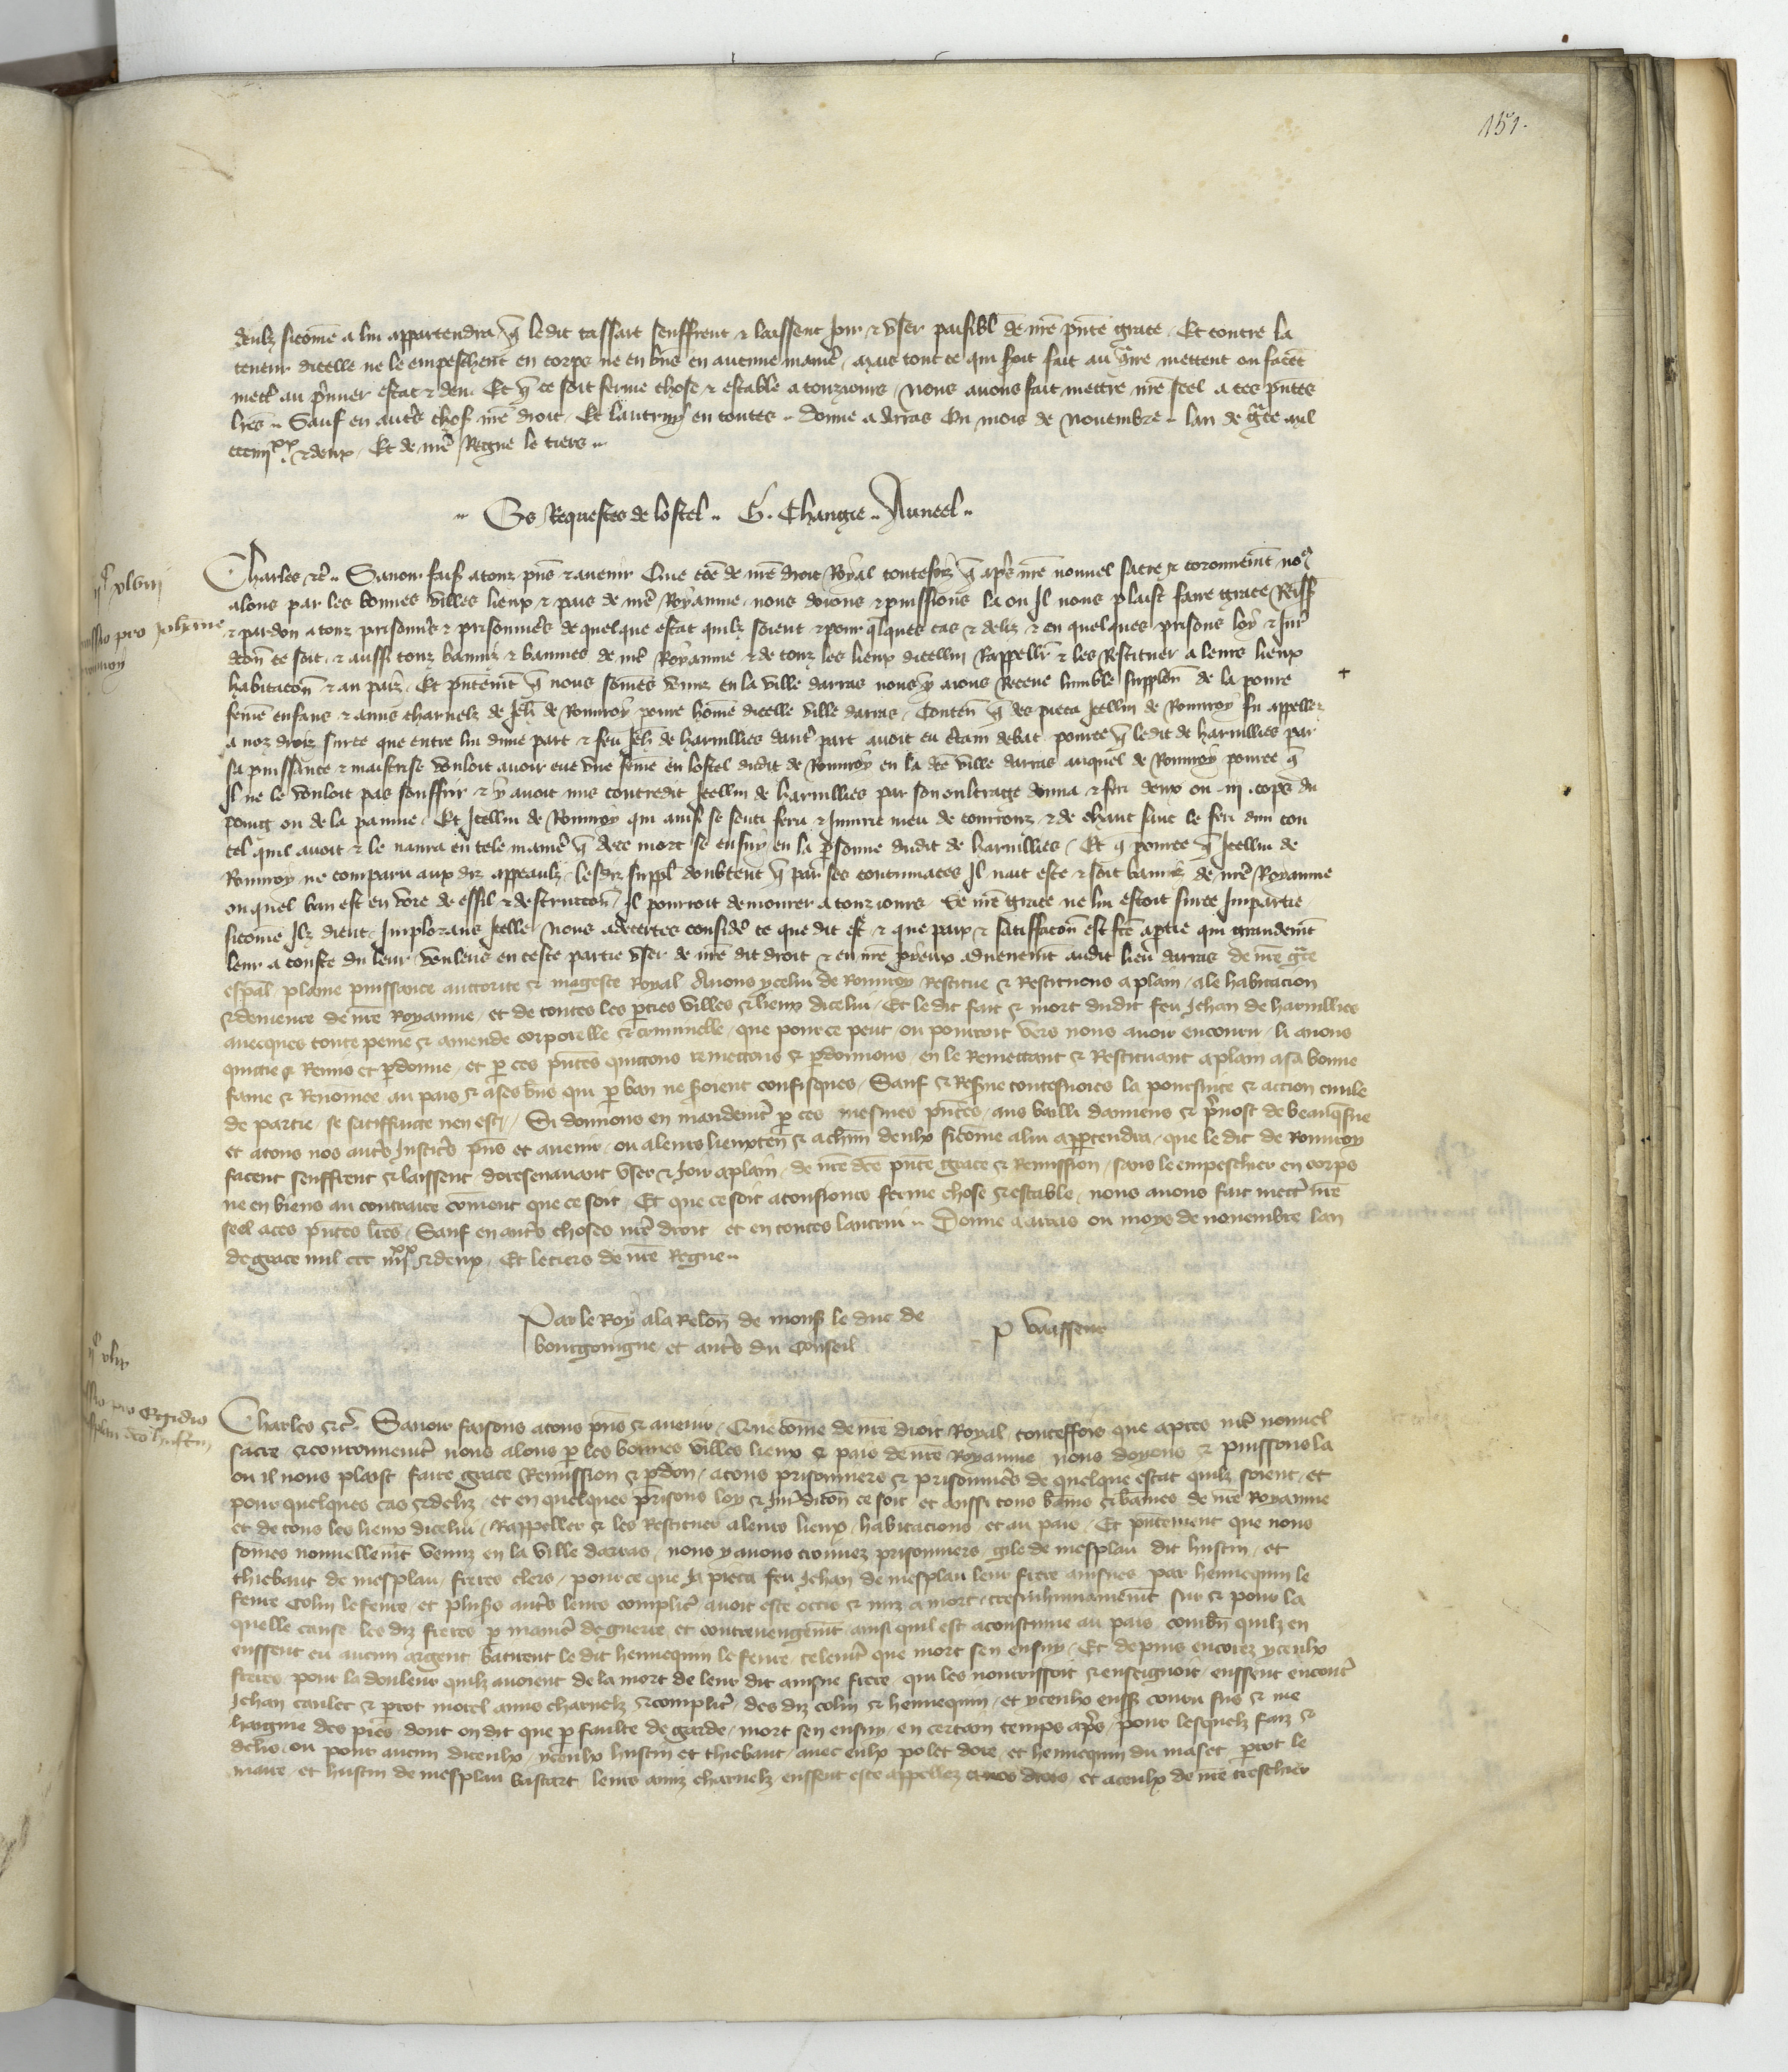 151.
deulz sicomme a lui appartendra q̃ ledit tassart seuffrent & laissent joir & user paisibl̃ de nr̃e p̃nte grace. Et contre la
teneur dicelle ne le empeschent en corps ne en biens en aucune manie᷑, mais tout ce qui soit fait au cont᷑re mettent ou facent
mett᷑ au p᷑mier estat & deu. Et q̃ ce soit ferme chose & estable a touzjours, nous avons fait mettre nr̃e seel a ces p̃ntes
lr̃es. Sauf en aut᷑s choses nr̃e droit. Et lautruy en toutes. Donne a Arras ou mois de Novembre. lan de grace mil
ccciiijxx & deux, Et de nr̃e Regne le tiers.
Es Requestes de lostel. G. Changie. Auneel.
ijc xlviij
Remissio pro Johanne
Charles &c. Savoir faiss a touz p̃ns & avenir Que coe de nr̃e droit Royal toutefoiz q̃ ap᷑s nr̃e nouvel sacre & coronnem̃t no9
alons par les bonnes villes lieux & pais de nr̃e Royaume, nous doions & puissions la ou Il nous plaist faire grace Remiss̃
& pardon a touz prisonnie᷑s & prisonnie᷑s de quelque estat quilz soient & pour q̃lques cas & deliz & en quelques prisons loy & Jur᷑
dicon̄ ce soit, & aussi touz banniz & bannies de nr̃e Royaume & de touz les lieux dicellui Rappell᷑ & les Restituer a leurs lieux
habitacon̄ & au paiz. Et p̃ntem̃t q̃ nous som̃es venuz en la ville darras nous y aions Receue lumble supplon̄ de la povre
fem̃e enfans & amis charnelz de Jeh̃ de Rouvroy povre hom̃e dicelle ville darras, Conten̄ q̃ des pieca Icellui de Rouvroy fu appellez
a noz droiz surce que entre lui dune part & feu Jeh̃ de harvillies daut᷑ part avoit eu certain debat pource q̃ ledit de harvillies par
sa puissance & maistrise vouloit avoir eue une fem̃e en lostel dudit de Rouvroy en la dc̃e ville darras auquel de Rouvroy pource q̃
Il ne le vouloit pas souffrir & y avoit mis contredit Icellui de harvillies par son oultrage donna & feri deux ou iij. cops du
poing ou de la paume. Et Icellui de Rouvroy qui ainsi se senti feru & Injurie meu de courrouz & de chaut sanc le feri dun cou
tel quil avoit & le navra en tele manie᷑ q̃ dece mort se ensuy en la p̃sonne dudit de harvillies, Et q̃ pource q̃ Icellui de
Rouvroy ne comparu aux diz appeaulz, lesdiz suppl̃ doubtent q̃ par ses contumaces Il nait este & soit banniz de nr̃e Royaume
ou quel ban est en voie de essil & destruccon̄, Il pourroit demourer a touz jours Se nr̃e grace ne lui estoit surce Impartie
sicom̃e Ilz dient, Implorans Icelle, Nous adecertes consider᷑ ce que dit est & que paix & satiffacon̄ est fc̃e a p̃tie qui grandem̃t
leur a couste du leur, voulens en ceste partie user de nr̃e dit droit & en nr̃e joyeux advenem̃t audit lieu darras de nr̃e gr̃ce
esp̃al plaine puissance auctorite & mageste Royal Avons ycelui de Rouvroy Restitue & Restituons a plain, a le habitacion
& demeure de nr̃e Royaume, et de toutes les p̃ties villes & lieux dicelui, Et le dit fait & mort dudit feu Jehan de harvillies
avecques toute peine & amende corporelle & criminelle, que pour ce peut ou pourroit vers nous avoir encouru, li avons
quittie & Remis et p̃donne, et p̃ ces p̃ntes quittons remettons & p̃donnons, en le Remettant & Restituant a plain a sa bonne
fame & Renom̃ee au pais & a ses biens qui p̃ ban ne seroient confisques, Sauf & Reserve toutesvoies la poursuite & accion civile
de partie, se satiffaicte nen est, Si donnons en mandem̃t p̃ ces mesmes p̃ntes, aus bailli damiens & p᷑vost de beauq̃sne
et a tous nos aut᷑s Justic᷑s p̃ns et avenir, ou a leurs lieuxten̄ & a ch̃un deulx sicom̃e a lui app̃tendra, que le dit de Rouvroy
facent seuffrent & laissent doresenavant user & joir a plain, de nr̃e dc̃e p̃nte grace & Remission, sans le empeschier en corps
ne en biens au contraire com̃ent que ce soit, Et que ce soit a tousjours ferme chose & estable, nous avons fait mett᷑ nr̃e
seel a ces p̃ntes lr̃es, Sauf en aut᷑s choses nr̃e droit et en toutes lautrui. Donne a arras ou moys de novembre lan
de grace mil ccc iiijxx & deux, Et le tiers de nr̃e Regne.
Par le Roy a la Relon̄ de mons᷑ le duc de
bourgoingne et aut᷑s du Conseil
P Vaisseur
ijc xlix
Remissio pro Egidio
Charles &c. Savoir faisons a tous p̃ns & avenir, Que com̃e de nr̃e droit Royal, touteffois que apres nr̃e nouvel
sacre & couronnem̃t nous alons p̃ les bonnes villes lieux & pais de nr̃e Royaume, nous doyons & puissons la
ou il nous plaist faire grace Remission & p̃don, a tous prisonniers & prisonnie᷑s de quelque estat quilz soient, et
pour quelques cas & deliz, et en quelques prisons loy & juridicon̄ ce soit, et aussi tous bannis & bannies de nr̃e Royaume
et de tous les lieux dicelui, Rappeller & les Restituer a leurs lieux, habitacions, et au pais, Et p̃ntement que nous
som̃es nouvellem̃t venuz en la ville darras, nous y avons trouvez prisonniers, gile de mesplau dit hustin, et
thiebaut de mesplau, freres clers, pour ce que ja pieca feu Jehan de mesplau leur frere ainsnes par hennequin le
fevre Colin lefevre, et plus᷑s aut᷑s leurs complic᷑, avoit este occis & mis a mort, tresinhumainem̃t sur & pour la
quelle cause, les diz freres p̃ manie᷑ de guerre, et contrevengem̃t, ainsi quil est acoustume au pais, combn̄ quilz en
eussent eu aucun argent, batirent le dit hennequin le fevre, telem̃t que mort sen ensuy, Et depuis encorez yceulx
freres pour la douleur quilz avoient de la mort de leur dit ainsne frere, qui les nourrissoit & enseignoit, eussent encont᷑
Jehan caulet & p̃rot morel amis charnelz & complic᷑, des diz colin & hennequin, et yceulx euss̃ couru sus & me
haigne des pies, dont on dit que p̃ faulte de garde, mort sen ensuy, en certain temps ap᷑s, pour lesquelz faiz &
deliz, ou pour aucun diceulx, yceulx hustin et thiebaut, avec eulx polet dore, et hennequin du maset p̃rot le
maire, et hustin de mesplau bastart, leurs amiz charnelz eussent este appellez a nos drois, et a ceulx de nr̃e treschier